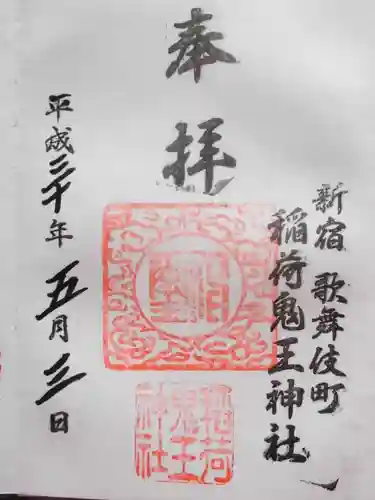 奉拝
新宿 歌舞伎町
稲荷鬼王神社
平成三十年五月三日
稲荷
鬼王
神社